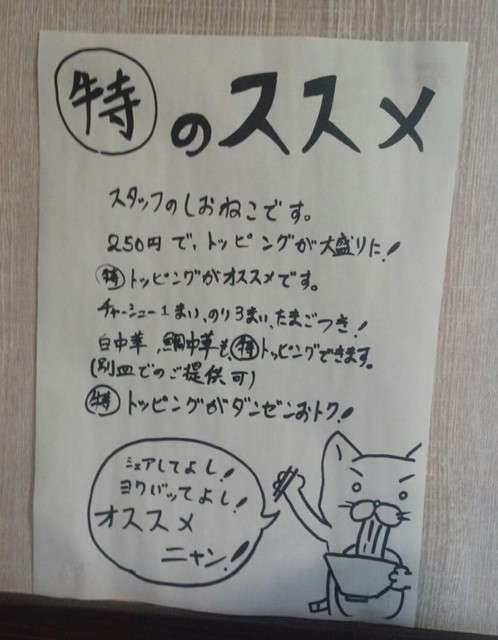 特のススメ
スタッフのしおねこです。
250円で、トッピングが大盛りに!
特トッピングがオススメです。
チャーシュー1まい、のり3まい、たまごつき!
白中華、鯛中華も、特トッピングできます。
(別皿でのご提供可)
特トッピングがダンゼンおトク!
シェアしてよし!
ヨクバッてよし!
オススメ
ニャン!